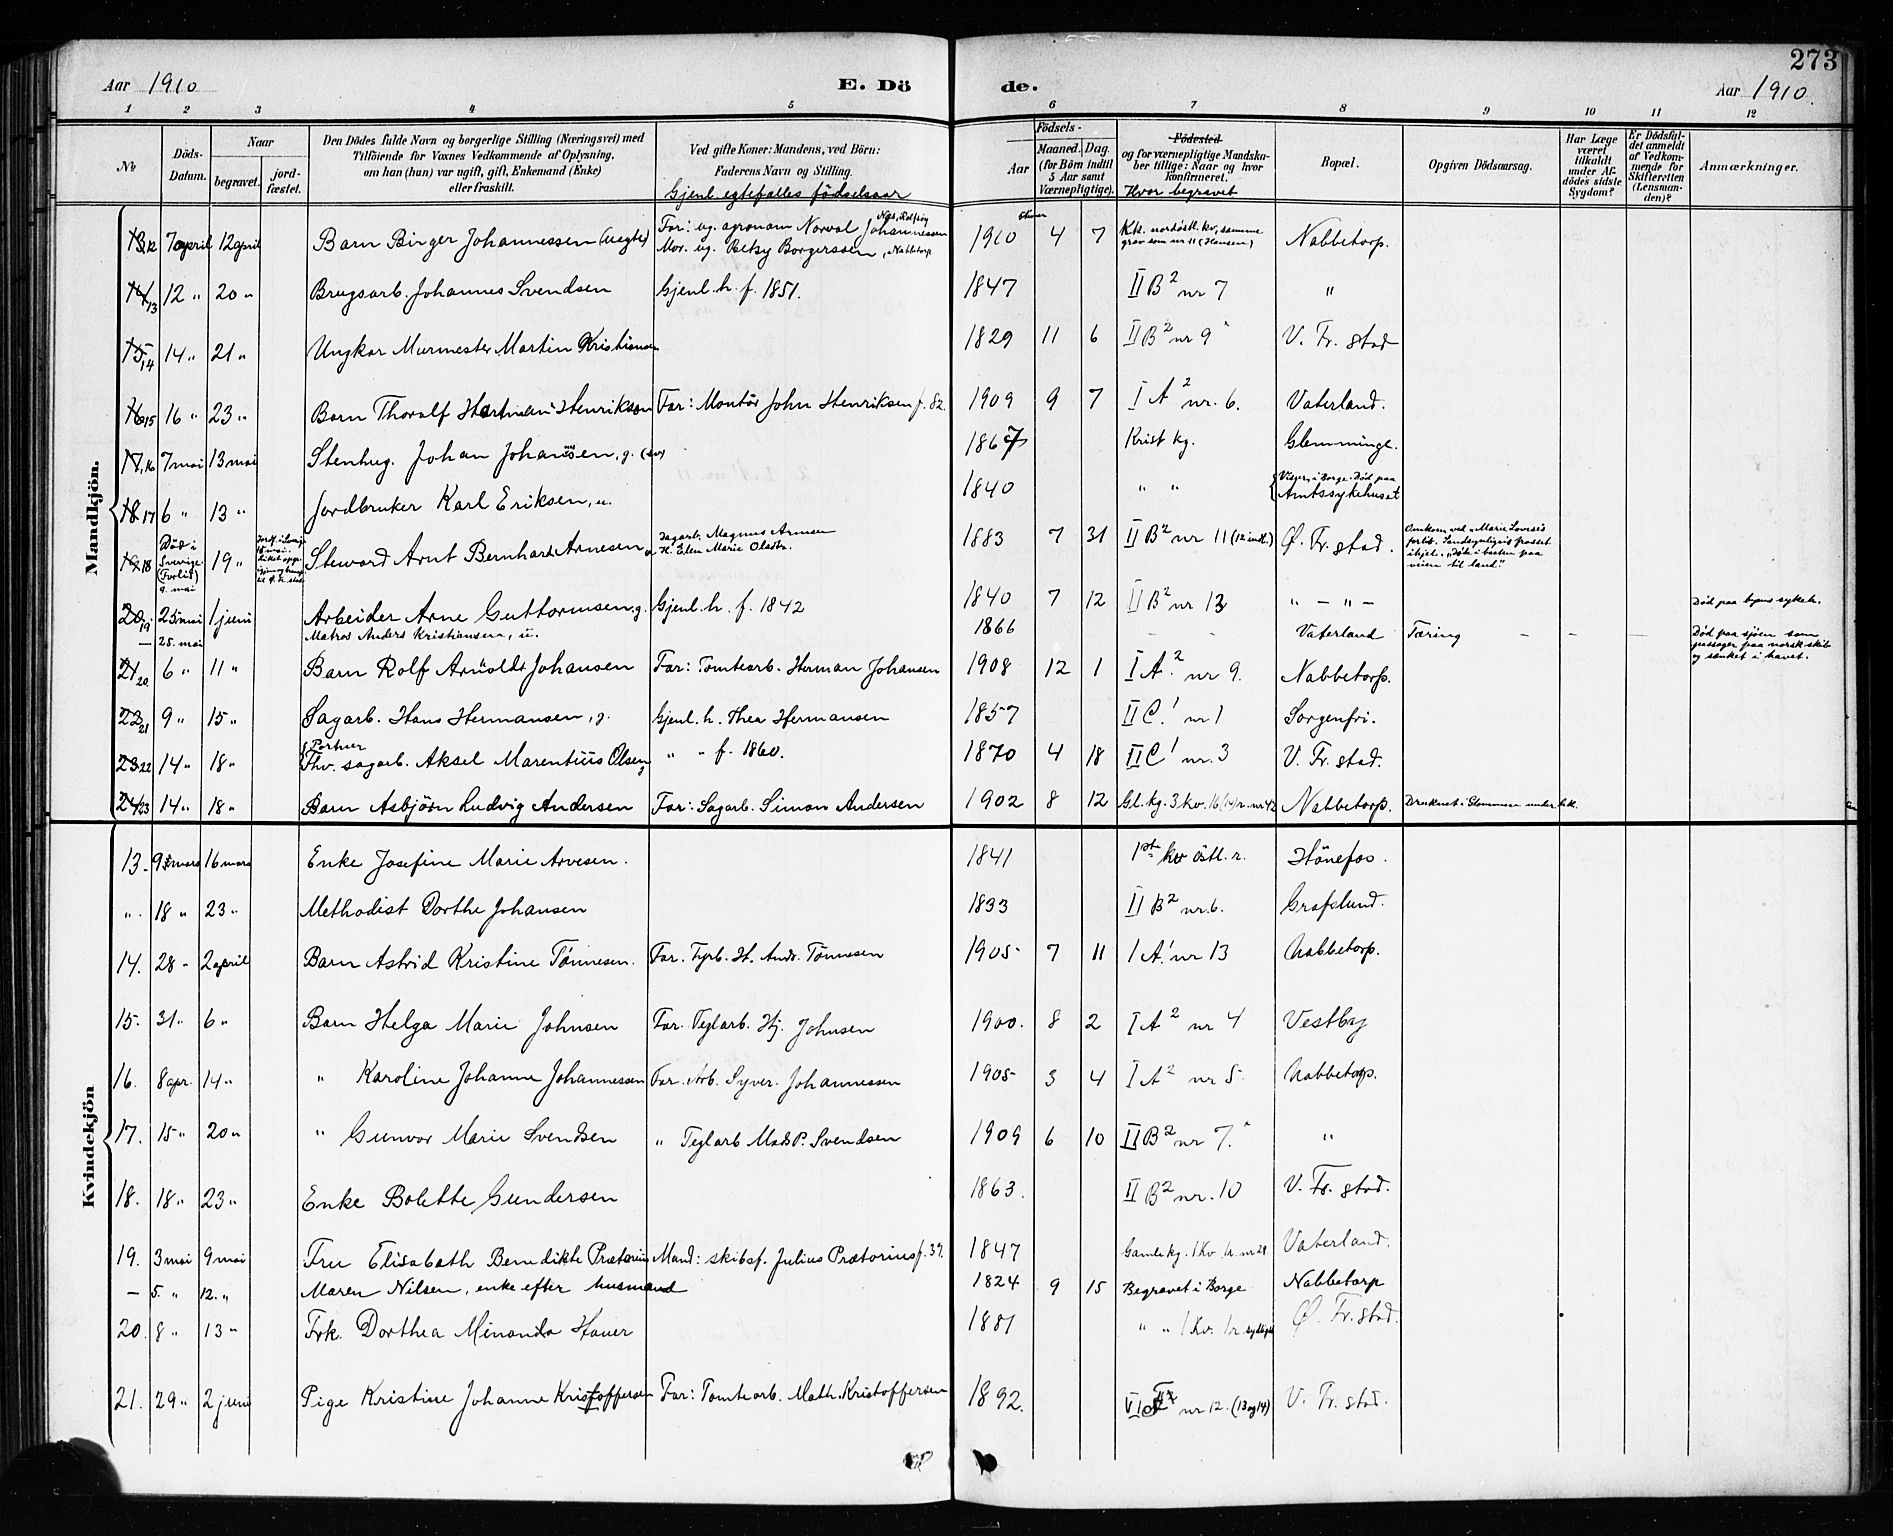 273
Aar 1910
E. Dö
de.
Aar 1910.
1 2 3 4 5 6 7 8 9 10 11 12
No
Döds-Datum.
Naar
begravet.
jord-fæstet.
Den Dödes fulde Navn og borgerlige Stilling (Næringsvei) med
Tilföiende for Voxnes Vedkommende af Oplysning,
om han (hun) var ugift, gift, Enkemand (Enke)
eller fraskilt.
Ved gifte Koner: Mandens, ved Börn:
Faderens Navn og Stilling.
Gjenl. egtefælles födselsaar
Födsels-
Aar
Maaned. Dag.
(for Börn indtil
5 Aar samt
Værnepligtige).
Födested
og for værnepligtige Mandska-
ber tillige: Naar og hvor
konfirmeret.
Hvor begravet
Bopæl.
Opgiven Dödsaarsag.
Har Læge
været
tilkaldt
under Af-
dödes sidste
Sygdom?
Er Dödsfal-
det anmeldt
af Vedkom-
mende for
Skifteretten
(Lensman-
den)?
Anmærkninger.
Mandkjön.
13,12 7 april 12 april Barn Birger Johannessen (uegte) Far: ug. agronom Norval Johannessen 1910 4 7 Kk. nordöstl. kv, samme Nabbetorp.
Mor. ug. Betsy Borgerssen, Nabbetorp grav som nr 11 (Hansen)
14/13 12 " 20 " Brugsarb. Johannes Svendsen Gjenl. h. f. 1851. 1847 II B² nr 7 "
15,14 14 " 21 " Ungkar Murmester Martin Kristiansen 1829 11 6 II B² nr 9 V. Fr. stad
16 15 16 " 23 " Barn Thoralf Hartman Henriksen Far: Montör John Henriksen f. 82. 1909 9 7 I A² nr. 6. Vaterland.
17,16 7 mai 13 mai Stenhug. Johan Johansen, g. 1867 Krist kg. Glemminge.
18 17 6 " 13 " Jordbruker Karl Eriksen, u. 1840 " " Borge. Död paa
Amtssykehuset
19 18 Död i Sverige (Forlis) 9. mai 19 " Steward Arnt Bernhard Arnesen Sagarb. Magnus Arnesen 1883 7 31 II B² nr 11 (12 indt.) Ø. Fr. stad. Omkom ved "Marie Lovise's
H. Elen Marie Olsdtr. forlis. Sandsynligvis frosset
ihjel. "Döde i baaten paa
veien til land."
20 19 25 mai 1 juni Arbeider Arne Guttormsen, g. Gjenl. h. f. 1842 1840 7 12 II B² nr 13 " — " — Död paa byens sykeh.
— 25. mai Matros Anders Kristiansen, u. 1866 — — Vaterland Tæring — — — Död paa sjöen som
passager paa norsk skib
og sænket i havet.
21 20. 6 " 11 " Barn Rolf Arnoldt Johansen Far: Tomtearb. Herman Johansen 1908 12 1 I A². nr 9. Nabbetorp.
22 21 9 " 15 " Sagarb. Hans Hermansen, g. Gjenl. h. Thea Hermansen 1857 II C.¹ nr 1 Sorgenfri.
Portner
23 22 14 " 18 " Fhv. sagarb. Aksel Marentius Olsen, g " " f. 1860. 1870 4 18 II C¹ nr. 3 V. Fr. stad.
24/23 14 " 18 " Barn Asbjörn Ludvig Andersen Far: Sagarb. Simon Andersen 1902 8 12 Gl. kg. 3 kv. 16 (14) r. nr 42 Nabbetorp. Druknet i Glommen under lek.
Kvindekjön
13. 9 mars 16 mars Enke Josefine Marie Arvesen. 1841 1ste kv östl. r. Hönefos.
". 18 " 23 " Methodist Dorthe Johansen 1833 II B² nr. 6. Grafslund.
14. 28 " 2 april Barn Astrid Kristine Tönnesen. Far. Fyrb. H. Andr. Tönnesen 1905 7 11 I A.¹ nr 13 Nabbetorp.
15. 31 " 6 " Barn Helga Marie Johnsen Far. Teglarb. Hj. Johnsen 1900. 8 2 I A² nr 4 Vestby
16. 8 apr. 14 " " Karoline Johanne Johannessen Far. Arb. Syver. Johannessen 1905 3 4 I A² nr 5. Nabbetorp.
17. 15 " 20 " " Gunvor Marie Svendsen " Teglarb Mads P. Svendsen 1909 6 10 II B² nr 7. "
18. 18 " 23 " Enke Bolette Gundersen 1863. II B² nr. 10 V. Fr. stad.
19. 3 mai 9 mai Fru Elisabeth Benedikte Prætorius Mand: skibsf. Julius Prætorius f. 37. 1847 Gamle kg. 1 Kv. 1r. nr 29. Vaterland.
— 5. " 12. " Maren Nilsen, enke efter husmand 1824 9 15 Begravet i Borge Nabbetorp
20. 8 " 13 " Frk. Dorthea Minanda Hauer 1881 " " 1 Kv. 1r. sydligst Ø. Fr. stad.
21. 29 " 2 juni Pige Kristine Johanne Kristoffersen Far: Tomtearb. Math. Kristoffersen 1892. nr 12. (13 og 14) V. Fr. stad.